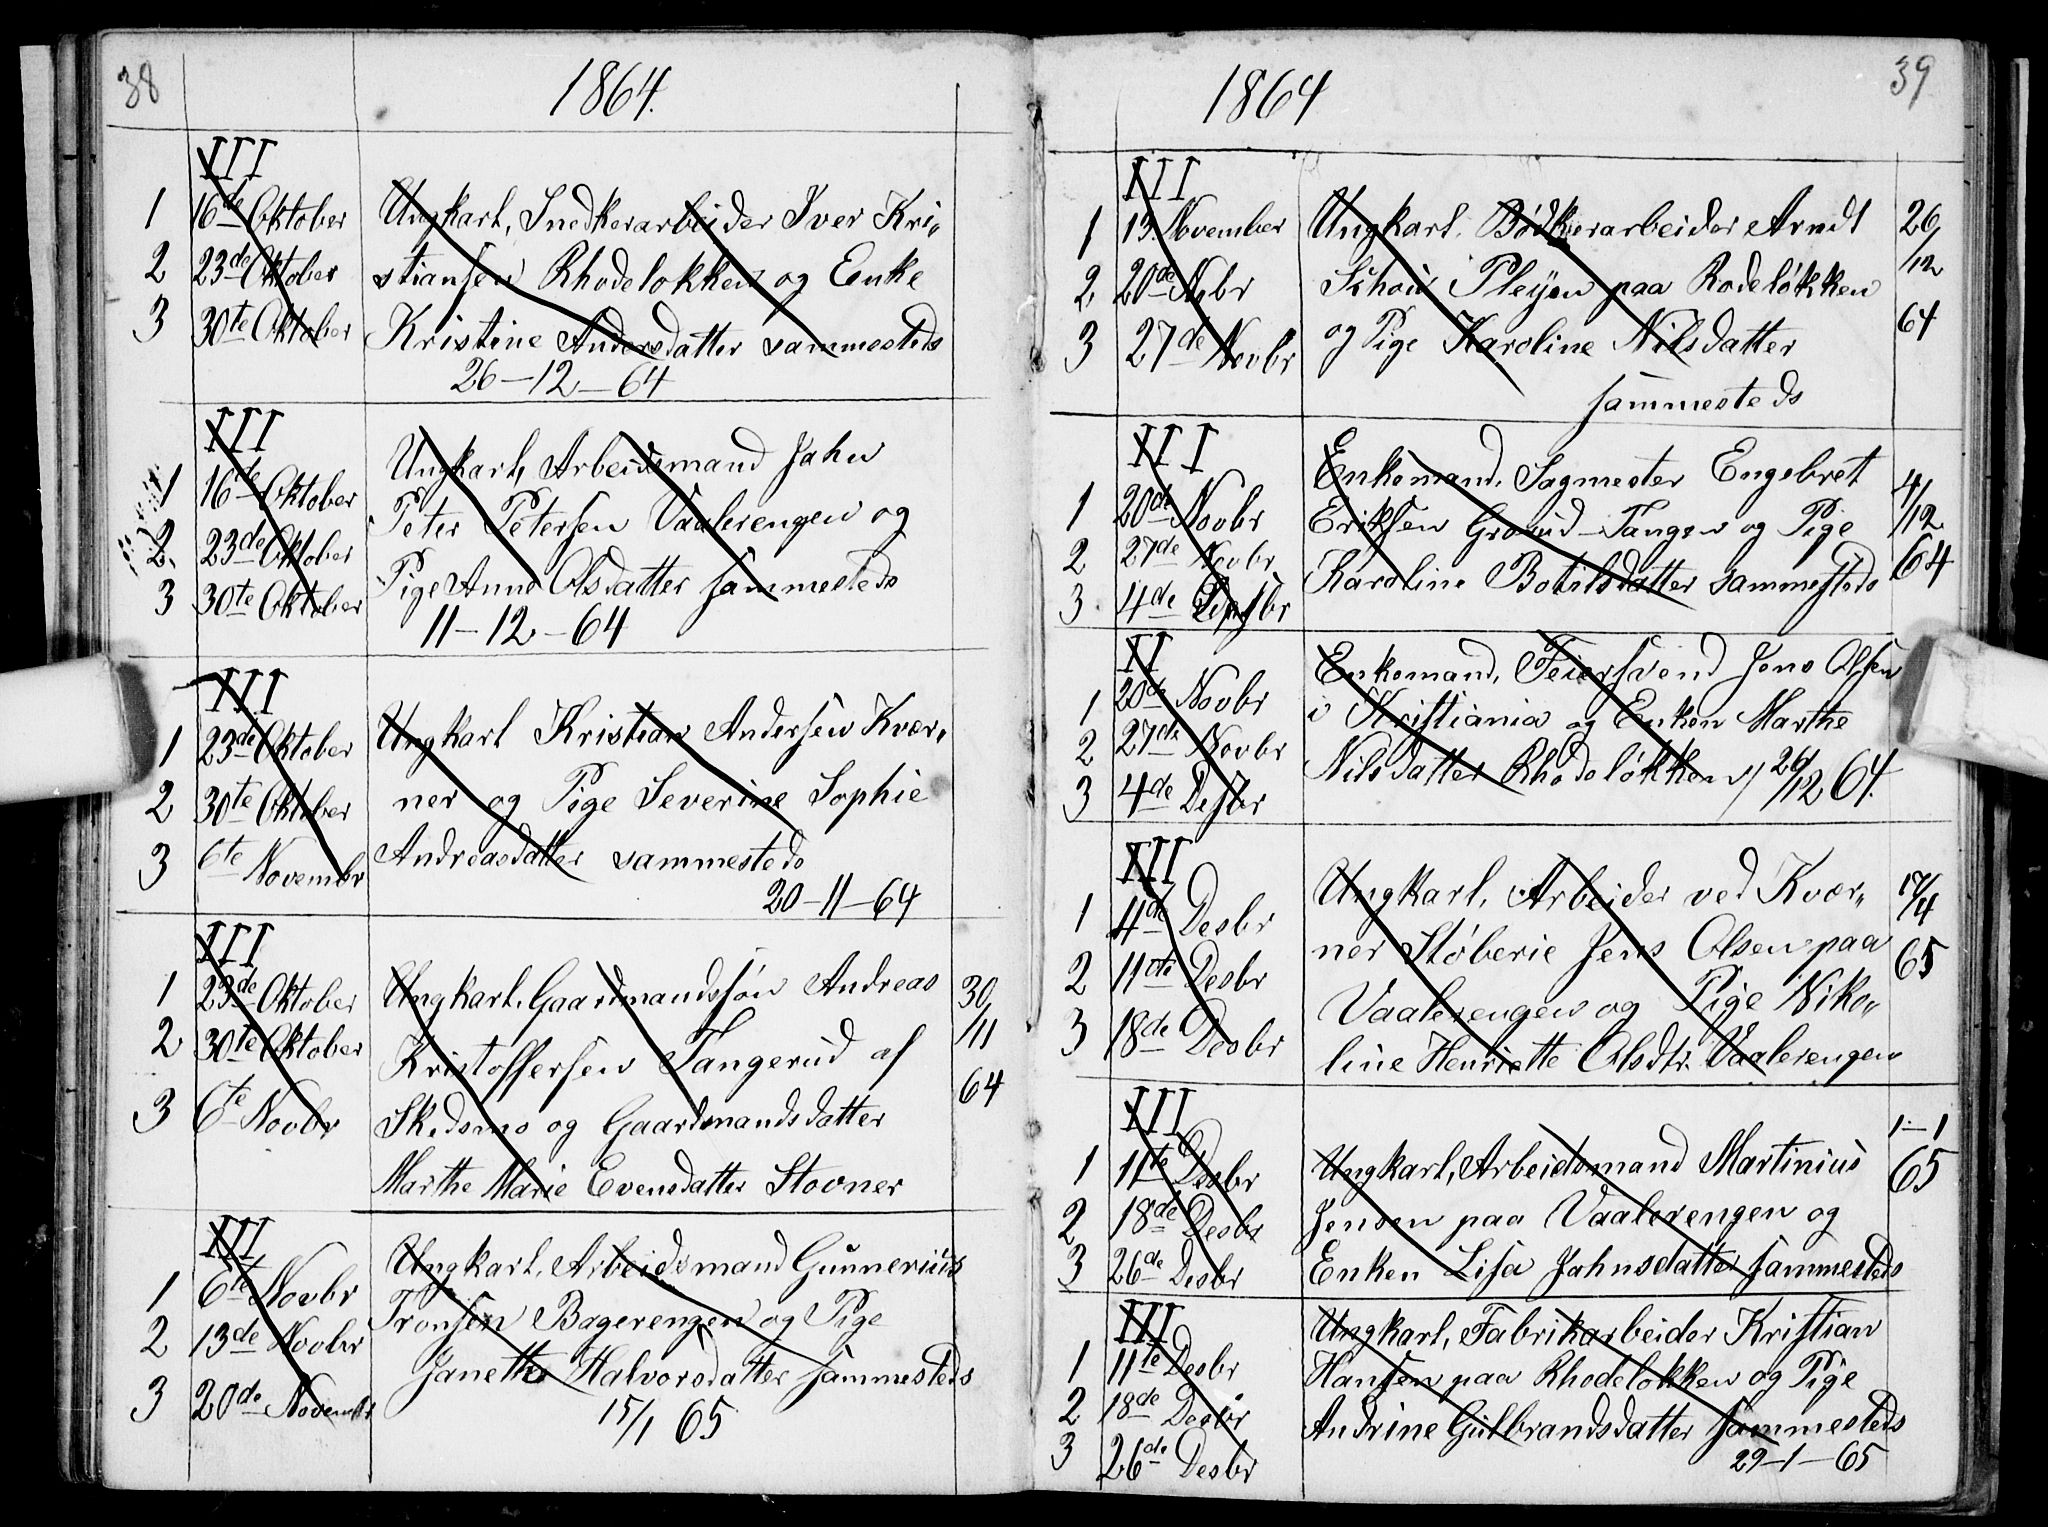 38
1864.
III
1 16de Oktober Ungkarl, Snedkerarbeider Iver Kri„
2 23de Oktober stiansen Rhodeløkken og Enke
3 30te Oktober Kristine Andersdatter sammesteds
26-12-64
III
1 16de Oktober Ungkarl, Arbeidsmand Jahn
2 23de Oktober Peter Petersen Vaalerengen og
3 30te Oktober Pige Anne Olsdatter sammesteds
11-12-64
III
1 23de Oktober Ungkarl Kristian Andersen Kvær„
2 30te Oktober ner og Pige Severine Sophie
3 6te Novembr Andreasdatter sammesteds
20-11-64
III
1 23de Oktober Ungkarl, Gaardmandssøn Andreas 30/
2 30te Oktober Kristoffersen Tangerud af 11
3 6te Novbr Skedsmo og Gaardmandsdatter 64
Marthe Marie Evensdatter Stovner
III
1 6te Novbr Ungkarl, Arbeidsmand Gunnerius
2 13de Novbr Tronsen Bagerengen og Pige
3 20de Novembr Janette Halvorsdatter sammesteds
15/1 65
39
1864
III
1 13. November Ungkarl, Bødkerarbeider Arndt 26/
2 20de Nvbr Schou Pleyen paa Rodeløkken 12
3 27de Novbr og Pige Karoline Nilsdatter 64
sammesteds
III
Enkemand, Sagmester Engebret 4/
1 20de Novbr Eriksen Grorud-Tangen og Pige 12
2 27de Novbr Karoline Botilsdatter sammesteds 64
3 4de Desbr
II
1 20de Novbr Enkemand, Feiersvend Jens Olsen
2 27de Novbr i Kristiania og Enken Marthe
3 4de Desbr Nilsdatter Rhodeløkken 26/12 64.
III
1 4de Desbr Ungkarl, Arbeider ved Kvær„ 17/4
2 11de Desbr ner Støberie Jens Olsen paa 65
3 18de Desbr Vaalerengen og Pige Niko„
line Henriette Olsdtr. Vaalerengen
III
1-1
1 11te Desbr Ungkarl, Arbeidsmand Martinius 65
2 18de Desbr Jensen paa Vaalerengen og
3 26de Desbr Enken Lisa Jahnsdatter sammesteds
III
Ungkarl, Fabrikarbeider Kristian
1 11te Desbr Hansen paa Rhodeløkken og Pige
2 18de Desbr Andrine Gulbrandsdatter sammesteds
3 26de Desbr 29-1-65